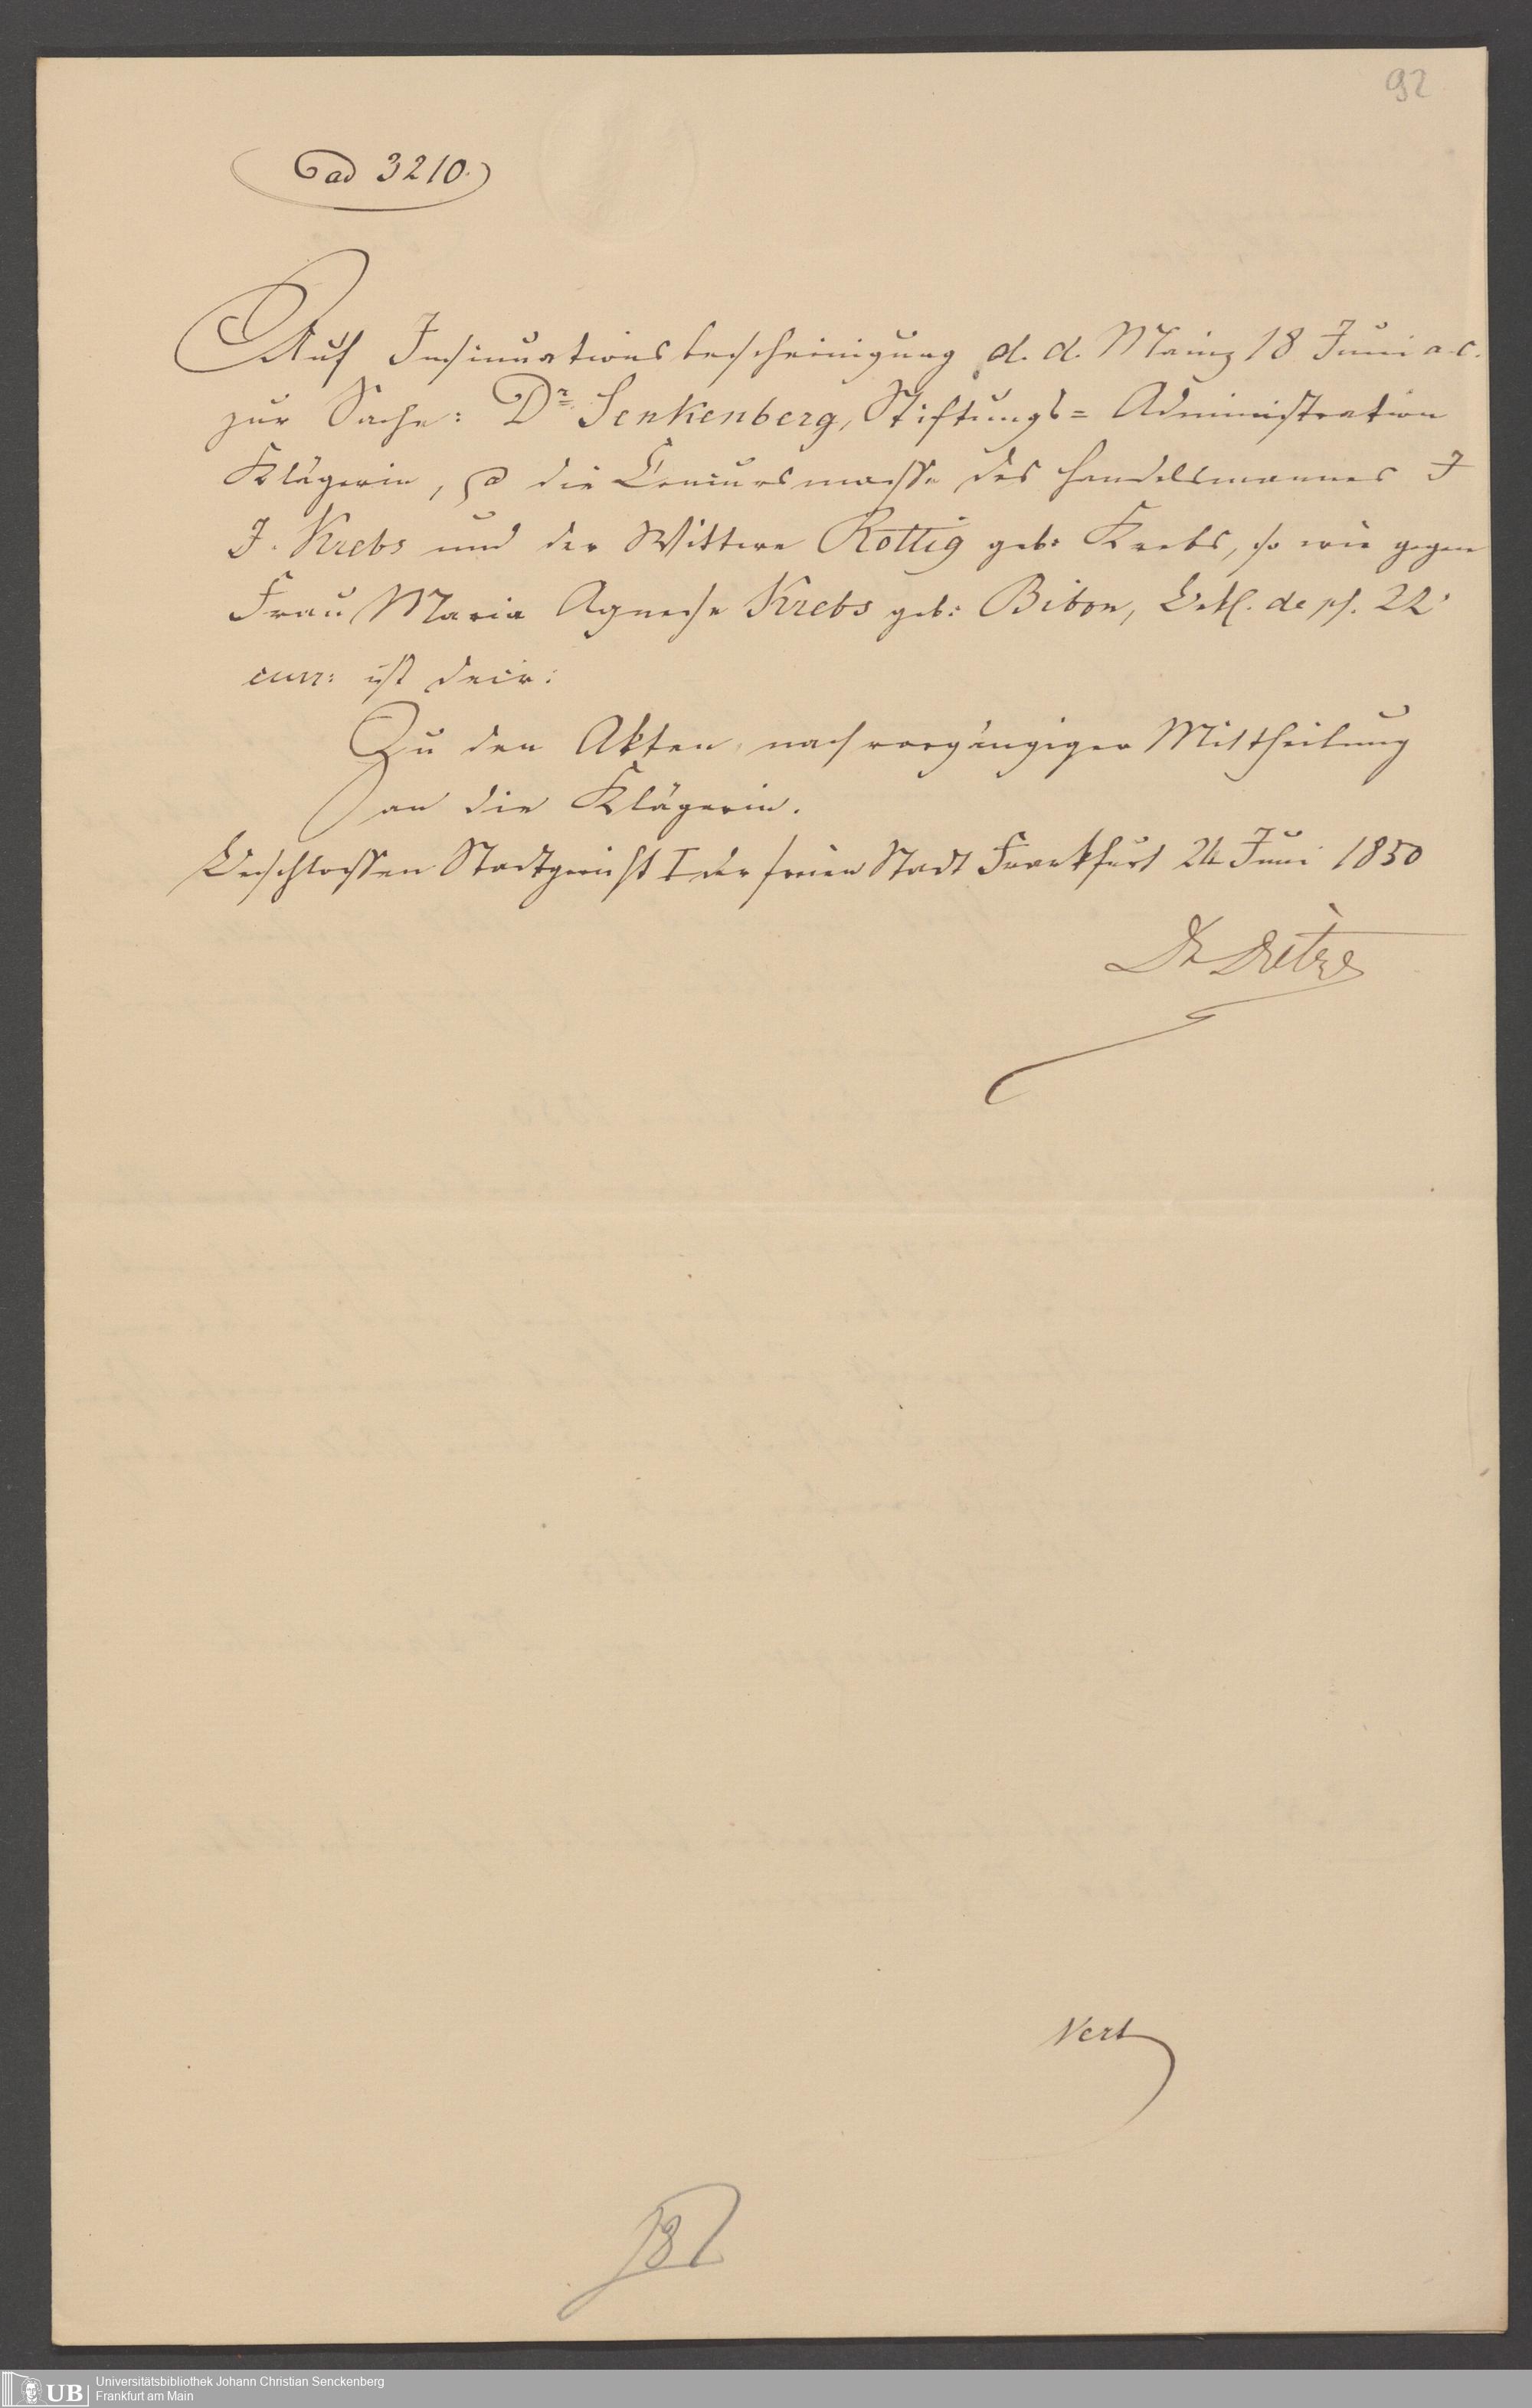 92
ad 3210.
Auf Insinuationsbescheinigung d. d. Mainz 18 Juni a. c.
zur Sache: Dr Senkenberg, Stiftungs= Administration
Klägerin, die Concursmasse des Handelsmannes J
J. Krebs und der Wittwe Rottig geb: Krebs, so wie gegen
Frau Maria Agnese Krebs geb: Bibon, Bekl. de ps. 22
curr: ist decr:
Zu den Akten, nach vorgängiger Mittheilung
an die Klägerin.
Beschlossen Stadtgericht I der freien Stadt Frankfurt 24 Juni 1850
Dr
Vert
UB Universitätsbibliothek Johann Christian Senckenberg
Frankfurt am Main